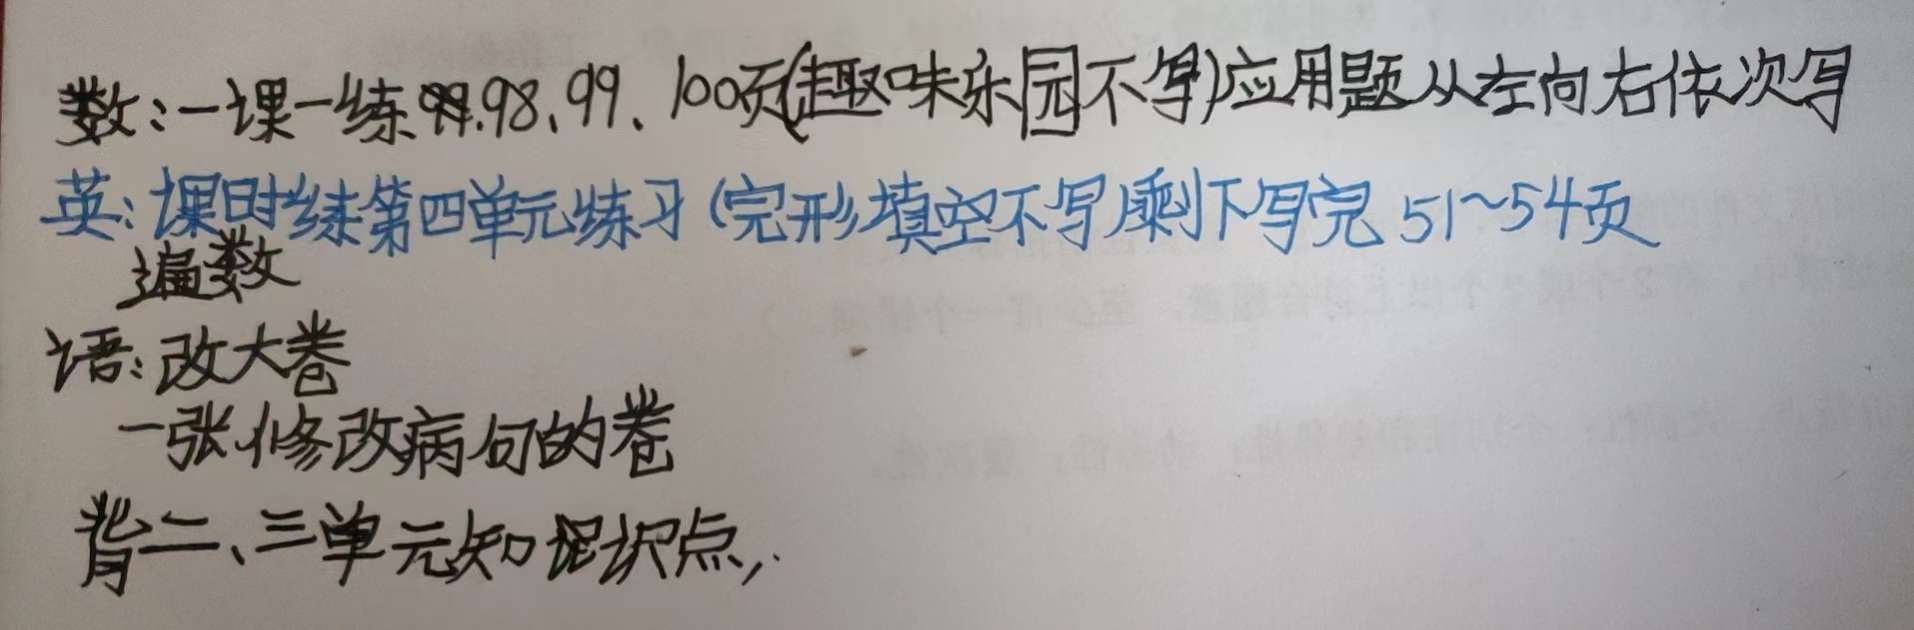 数:一课一练 98、99、100页(趣味乐园不写)应用题从左向右依次写
英:课时练第四单元练习(完形填空不写)剩下写完 51~54页
遍数
语:改大卷
一张修改病句的卷
背二、三单元知识点,.